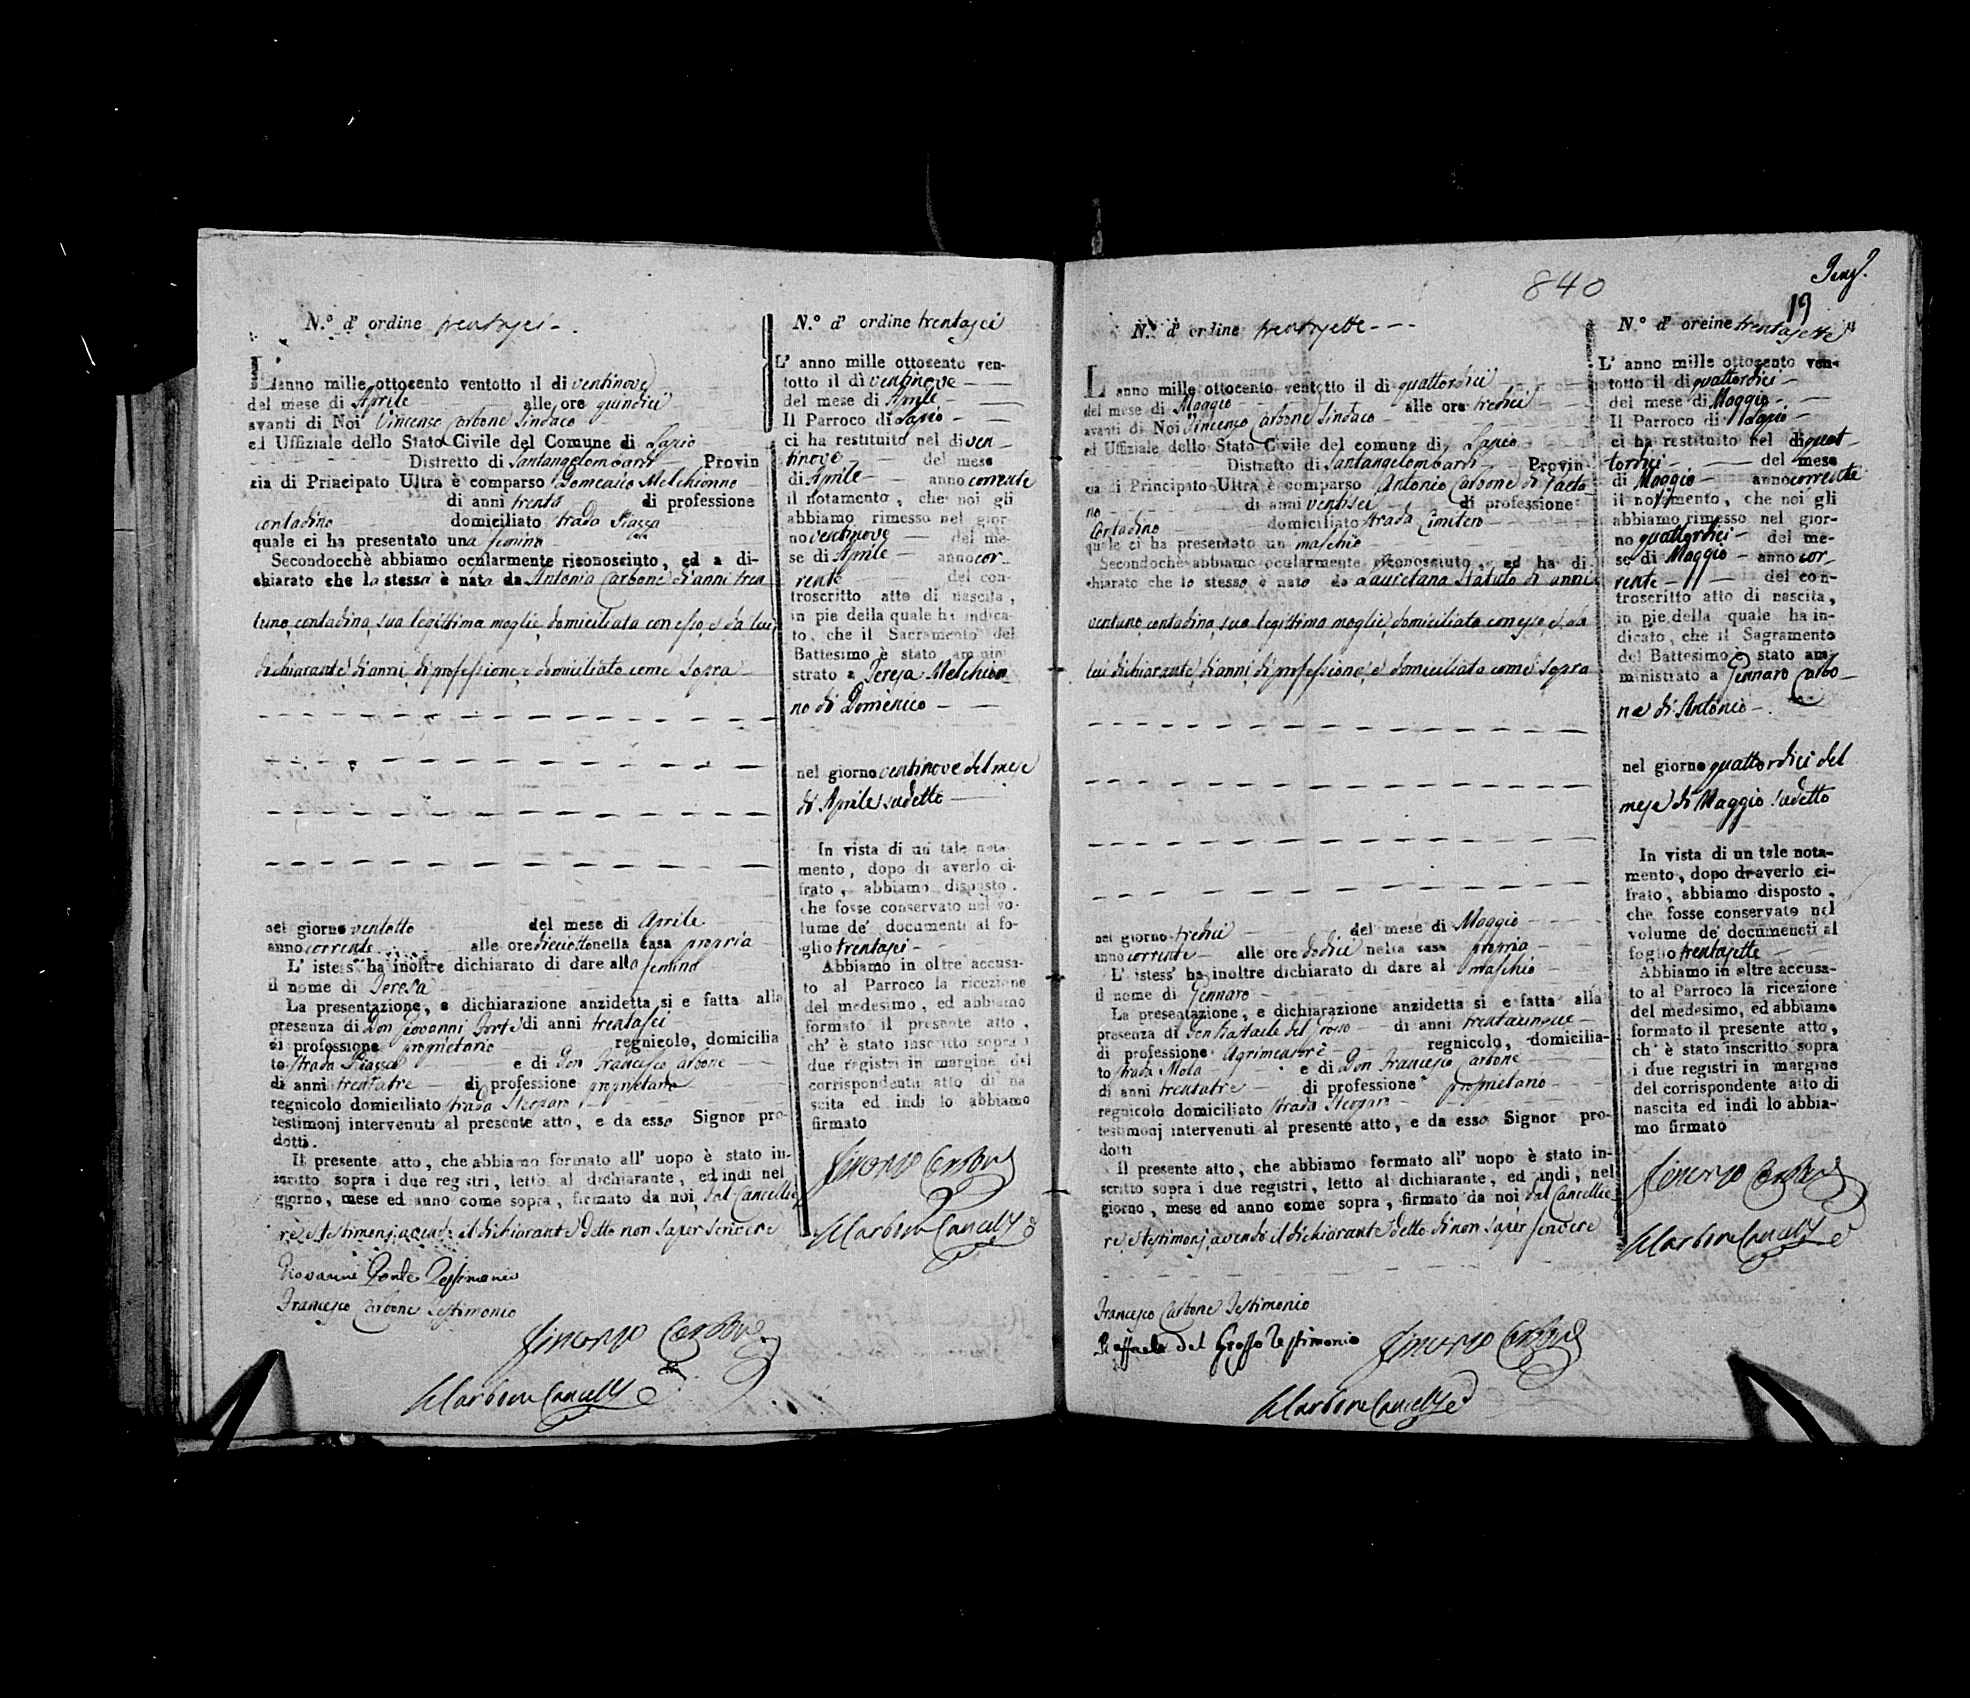 N.º d' ordine trentasei
L' anno mille ottocento ventotto il di ventinove
del mese di Aprile alle ore quindici
avanti di Noi Vincenzo Carbone Sindaco
ed Uffiziale dello Stato Civile del Comune di Lapio
Distretto di Santangelombardi Provin
zia di Principato Ultra è comparso Domenico Melchionno
di anni trenta di professione
contadino domiciliato strada Piazza
quale ci ha presentato una femina
Secondocchè abbiamo ocularmente riconosciuto, ed a di-
chiarato che la stessa è nata da Antonia Carbone di anni tren
tuno, contadina, sua legittima moglie, domiciliata con esso, e da lui
dichiarante di anni, di professione e domiciliato come sopra
nel giorno ventotto del mese di Aprile
anno corrente alle ore dicciotto nella casa propria
L' istess' ha inoltre dichiarato di dare alla femina
il nome di Teresa
La presentazione, e dichiarazione anzidetta si e fatta alla
presenza di Don Giovanni Forte di anni trentasei
di professione proprietario regnicolo, domicilia
to strada Piazza e di Don Francesco Carbone
di anni trentatre di professione proprietario
regnicolo domiciliato strada
testimonj intervenuti al presente atto, e da esso Signor pro-
dotti.
Il presente atto, che abbiamo formato all' uopo è stato in-
scritto sopra i due registri, letto al dichiarante, ed indi nel
ggiorno, mese ed anno come sopra, firmato da noi, dal Cancellie
re e testimonj avendo il dichiarante detto non saper scrivere
Giovanni Forte Testimonio
Francesco Carbone Testimonio
Vincenzo Carbone
Carbone Cancell
N.º d' ordine trentasei
L' anno mille ottocento ven-
totto il dì ventinove
del mese di Aprile
Il Parroco di Lapio
ci ha restituito nel di ven_
tinove del mese
di Aprile anno corrente
il notamento, che noi gli
abbiamo rimesso nel gior-
no ventinove del me-
se di Aprile anno cor_
rente del con-
troscritto atto di nascita,
in pie della quale ha indica-
to, che il Sacramento del
Battesimo è stato ammini
strato a Teresa Melchion
no di Domenico
nel giorno ventinove del mese
di Aprile sudetto
In vista di un tale nota-
mento, dopo di averlo ci-
frato, abbiamo disposto.
che fosse conservato nel vo-
lume de' documenti al fo-
glio trentasei
Abbiamo in oltre accusa-
to al Parroco la ricezione
del medesimo, ed abbiamo
formato il presente atto,
ch' è stato inscritto sopra i
due registri in margine del
corrispondente atto di na
scita ed indi lo abbiamo
firmato
Vincenzo Carbone
Carbone Cancell
840
19
N.º d' ordine trentasette
L' anno mille ottocento ventotto il di quattordici
del mese di Maggio alle ore tredici
avanti di Noi Vincenzo Carbone Sindaco
ed Uffiziale dello Stato Civile del comune di Lapio
Distretto di Santangelombardi Provin
cia di Principato Ultra è comparso Antonio Carbone di Gaeta
no di anni ventisei di professione
Contadino domiciliato strada Cimitero
quale ci ha presentato un maschio
Secondochè abbiamo ocularmente riconosciuto, ed ha di
chiarato che lo stesso è nato da Gaietana Statuto di anni
ventuno, contadina, sua legittima moglie, domiciliata con esso, e da
lui dichiarante di anni, di professione, e domiciliato come sopra
nel giorno tredici del mese di Maggio
anno corrente alle ore dodici nella casa propria
L' istess' ha inoltre dichiarato di dare al maschio
il nome di Gennaro
La presentazione, e dichiarazione anzidetta si e fatta alla
presenza di Don Raffaele del Grosso di anni trentacinque
di professione Agrimensore regnicolo, domicilia-
to strada Mola e di Don Francesco Carbone
di anni trentatre di professione proprietario
regnicolo domiciliato strada
testimonj intervenuti al presente atto, e da esso Signor pro-
dotti
Il presente atto, che abbiamo formato all' uopo è stato in-
scritto sopra i due registri, letto al dichiarante, ed indi, nel
giorno, mese ed anno come sopra, firmato da noi dal Cancellie
re, e testimonj avendo il dichiarante detto di non saper scrivere
Francesco Carbone Testimonio
Raffaele del Grosso Testimonio
Vincenzo Carbone
Carbone Cancell
N.º d' oreine trentasette
L' anno mille ottocento ven-
totto il di quattordici
del mese di Maggio
Il Parroco di Lapio
ci ha restituito nel di quat_
tordici del mese
di Maggio anno corrente
il notamento, che noi gli
abbiamo rimesso nel gior-
no quattordici del me-
se di Maggio anno cor_
rente del con-
troscritto atto di nascita,
in pie della quale ha in-
dicato, che il Sagramento
del Battesimo è stato am-
ministrato a Gennaro Carbo_
ne di Antonio
nel giorno quattordici del
mese di Maggio sudetto
In vista di un tale nota-
mento, dopo di averlo ci-
frato, abbiamo disposto,
che fosse conservato nel
volume de' documeneti al
foglio trentasette
Abbiamo in oltre accusa-
to al Parroco la ricezione
del medesimo, ed abbiamo
formato il presente atto,
ch' è stato inscritto sopra
i due registri in margine
del corrispondente atto di
nascita ed indi lo abbia-
mo firmato
Vincenzo Carbone
Carbone Cancell